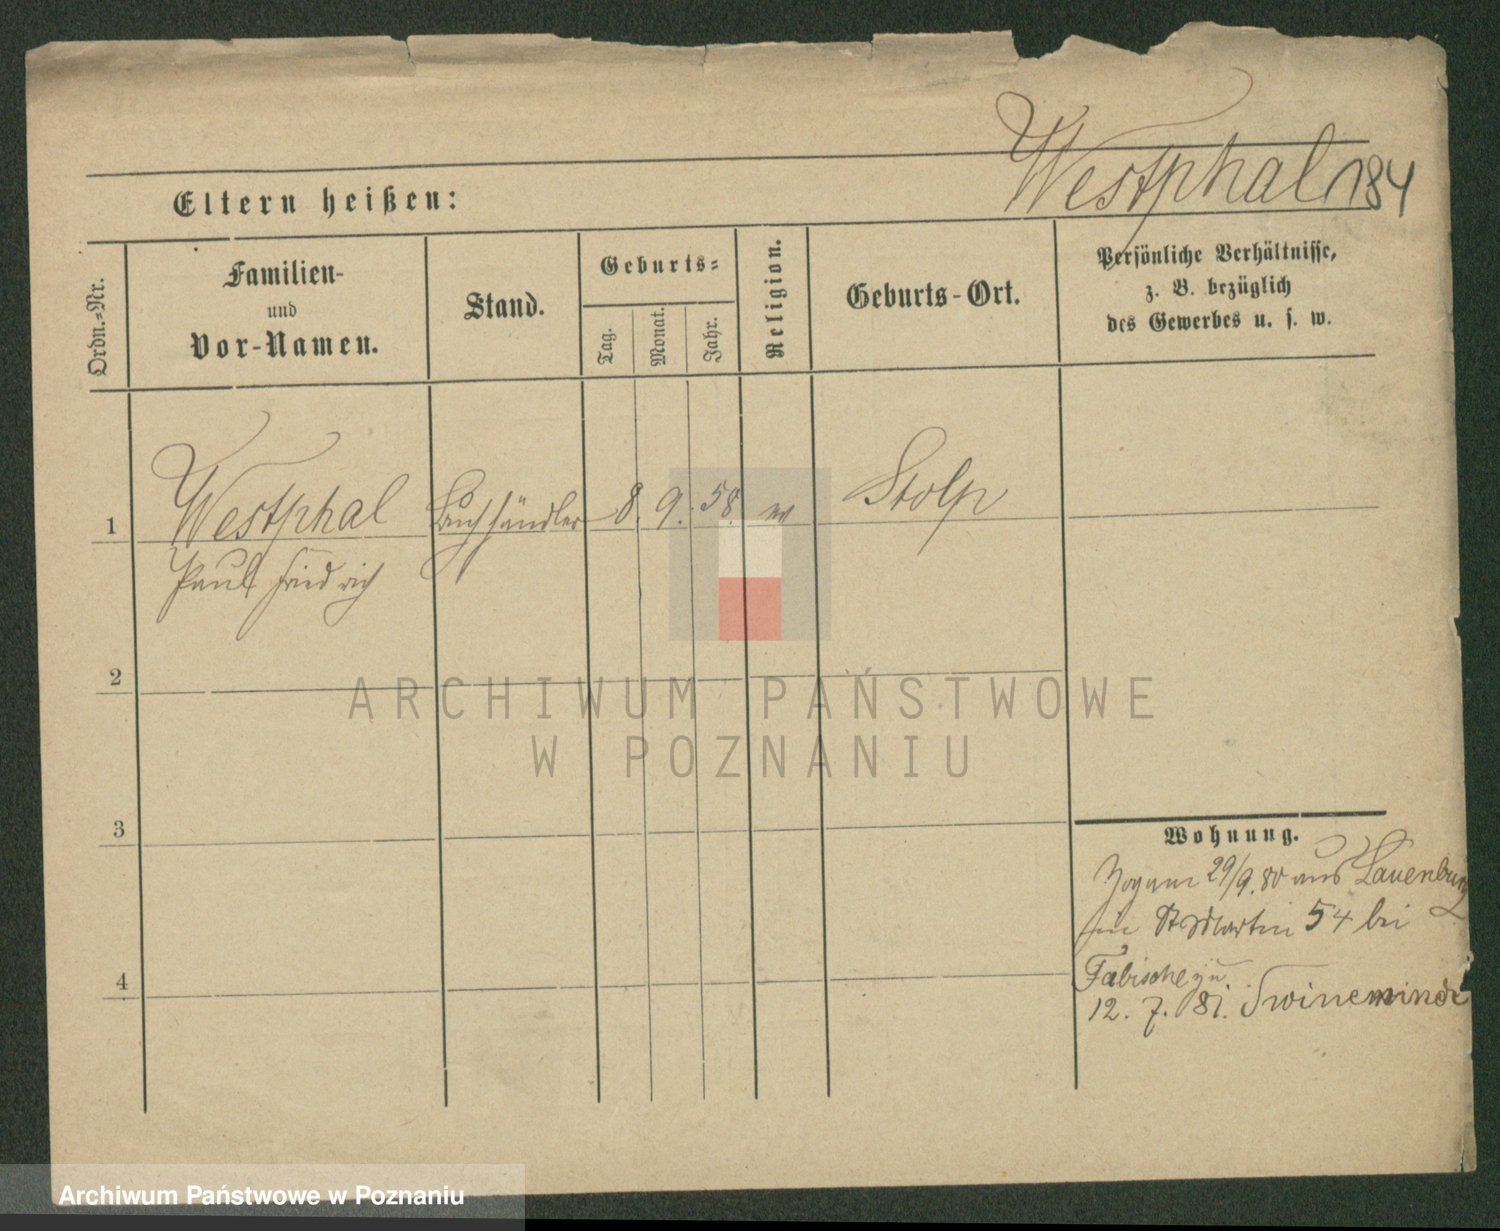 Westphal 184
Eltern heißen:
Ordn.-Nr.
Familien-
und
Vor-Namen.
Stand.
Geburts-
Tag.
Monat.
Jahr.
Religion.
Geburts-Ort.
Persönliche Verhältnisse,
z. B. bezüglich
des Gewerbes u. s. w.
1 Westphal Buchhändler 8. 9. 58. ev Stolp
Paul Friedrich
2
3
4
Wohnung.
Zog am 29/9.80 aus Lauenburg
in St Martin 54 bei
12. 7. 81. Swineminde
ARCHIWUM PAŃSTWOWE
W POZNANIU
Archiwum Państwowe w Poznaniu